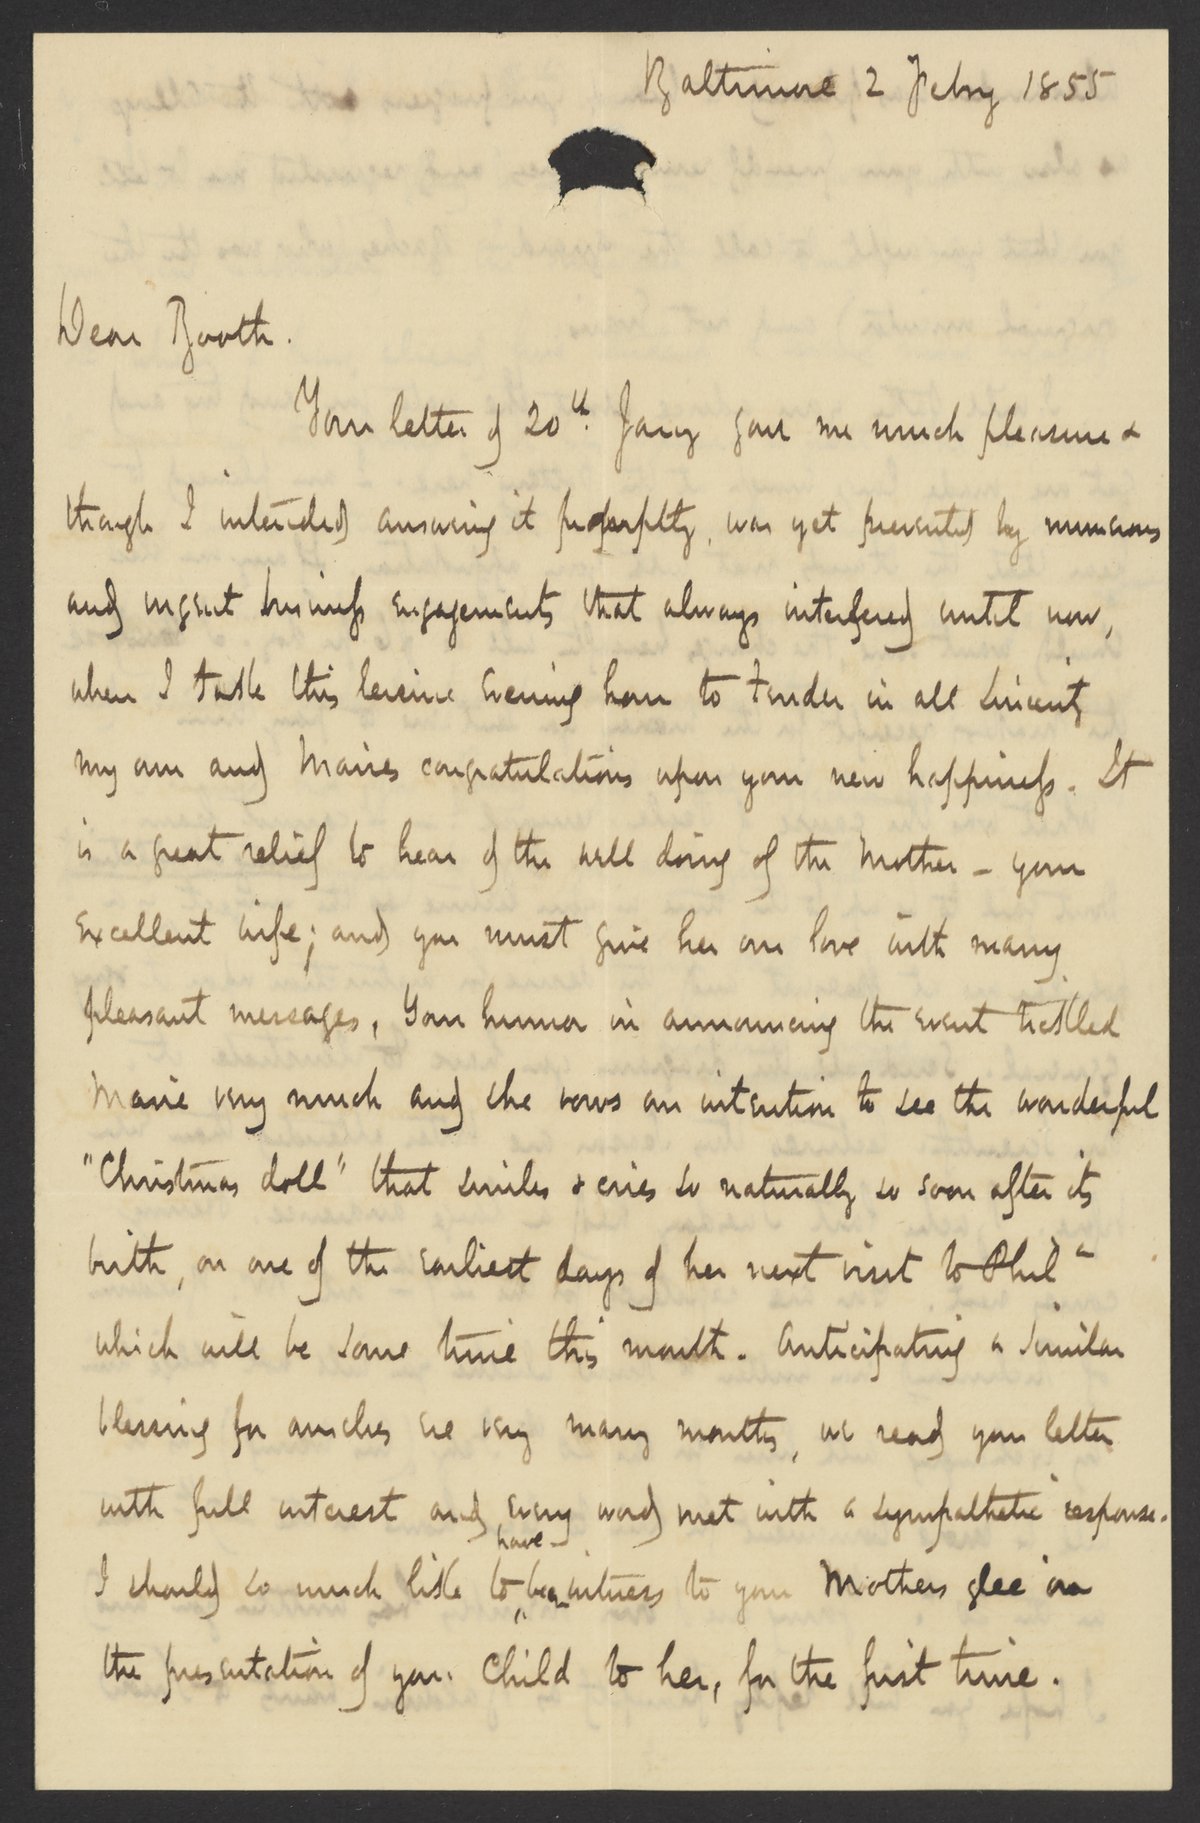 Baltimore 2 Feby 1855
Dear Booth.
Your letter of 20th. Jany gave me much pleasure &
though I intended answering it promptly, was yet prevented by numerous
and urgent business engagements that always interfered until now,
when I take this leisure evening hour to tender in all sincerity
my own and Maries congratulations upon your new happiness. It
is a great relief to hear of the well doing of the Mother – your
excellent wife; and you must give her our love with many
pleasant messages, Your humor in announcing the event tickled
Marie very much and she vows an intention to see the wonderful
"Christmas doll" that smiles & cries so naturally so soon after its
birth, on one of the earliest days of her next visit to Phila
which will be some time this month. Anticipating a similar
blessing for ourselves ere very many months, we read your letter
with full interest and every word met with a sympathetic response.
I should so much like to have been witness to your Mothers glee on
the presentation of your Child to her, for the first time.